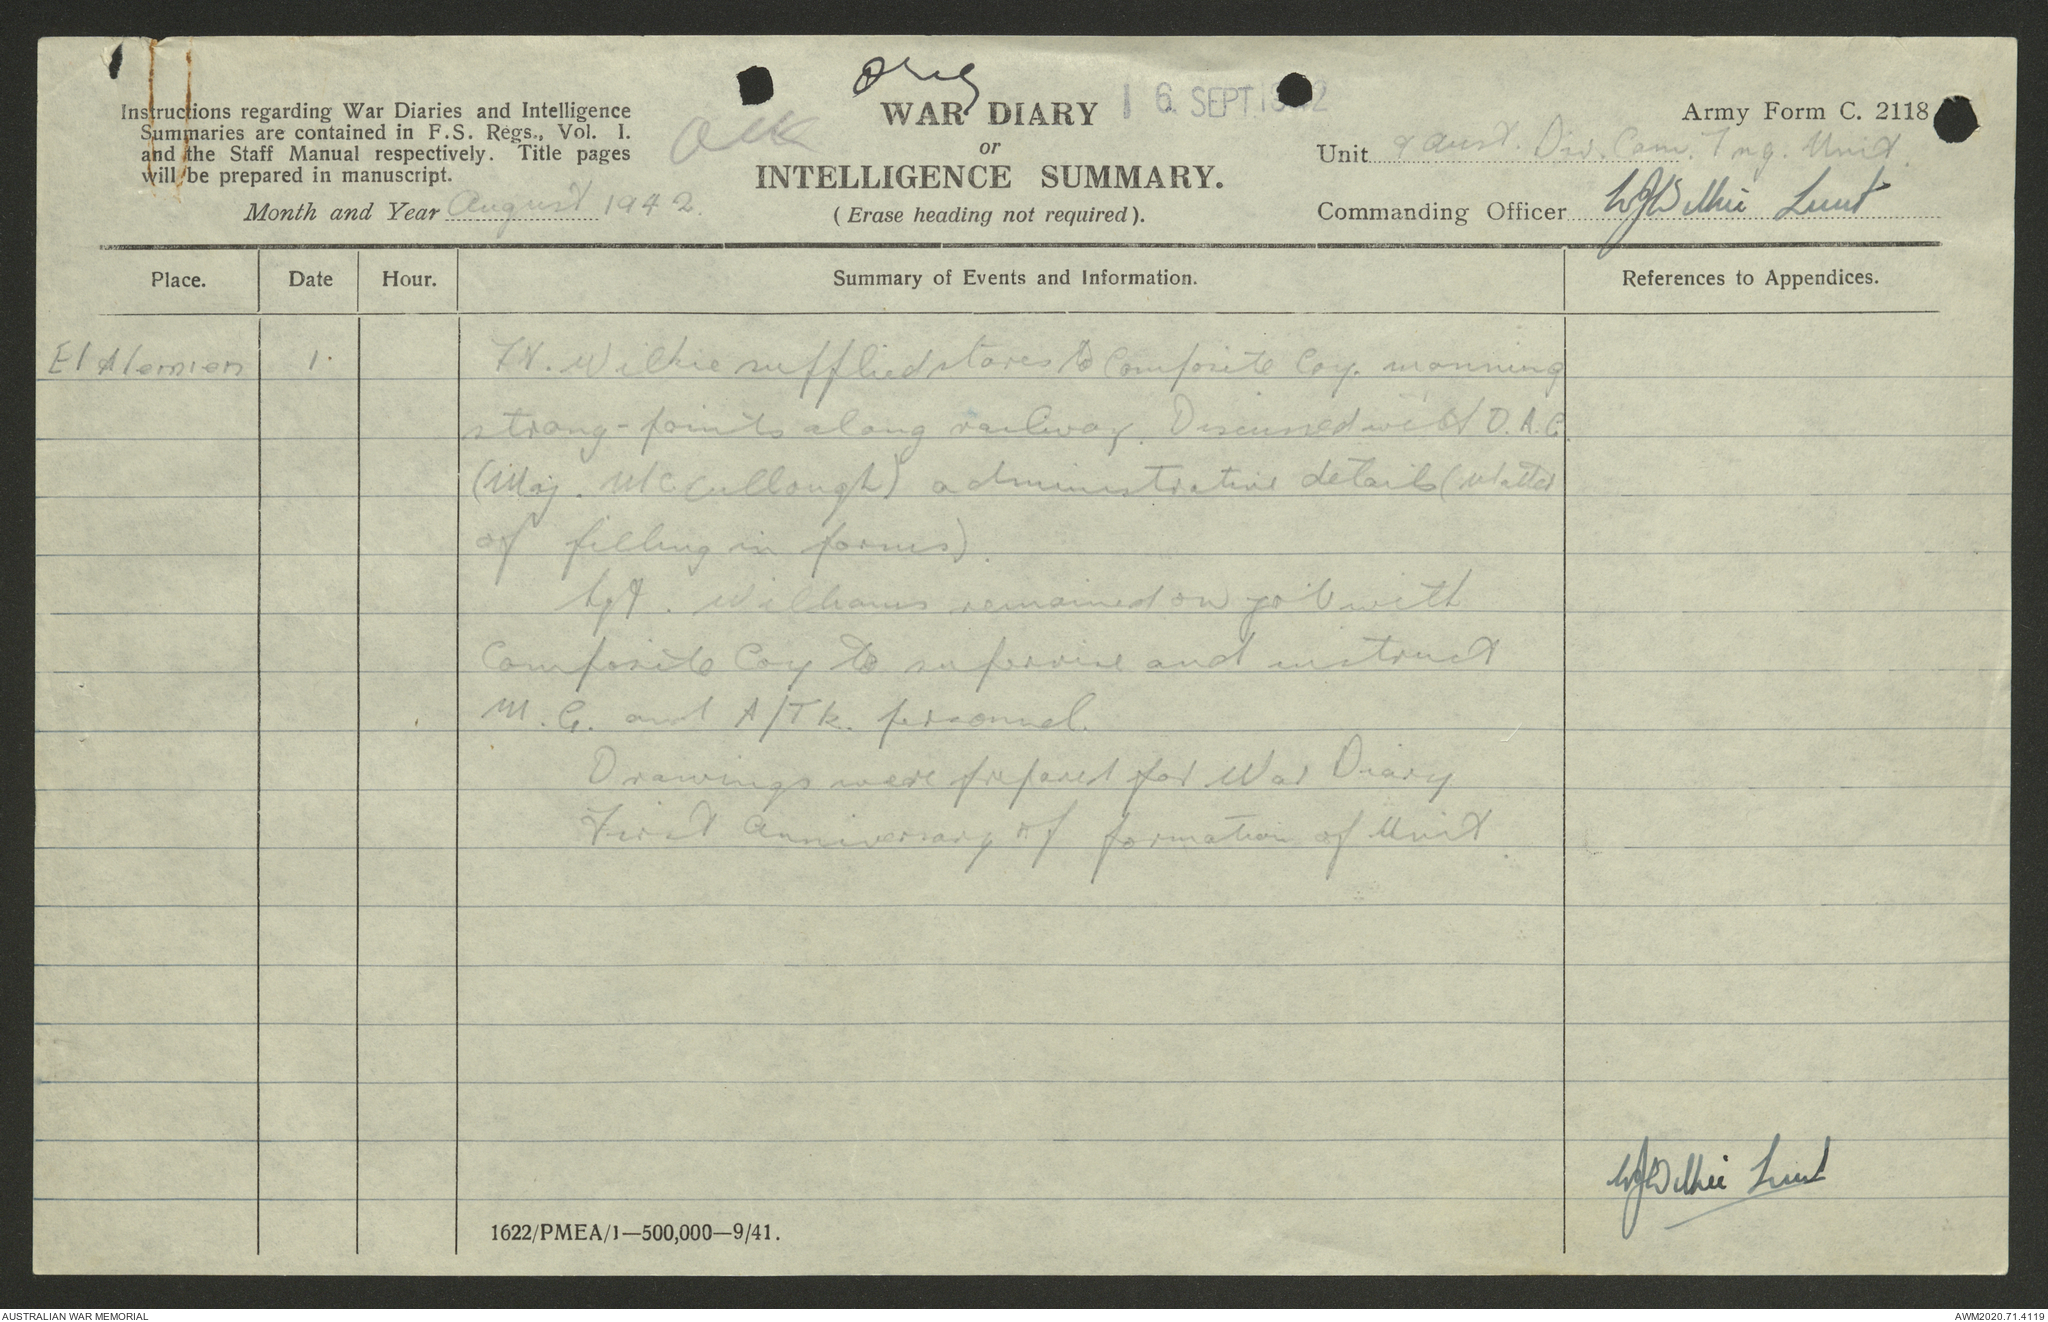 Orig
16 SEPT 1942
Instructions regarding War Diaries and Intelligence
Summaries are contained in F.S. Regs., Vol. I.
and the Staff Manual respectively. Title pages
will be prepared in manuscript.
Month and Year August 1942.
WAR DIARY
or
INTELLIGENCE SUMMARY.
(Erase heading not required).
Army Form C. 2118
Unit 9 Aust. Div. Cam. Tng. Unit.
Commanding Officer WJWilkie Lieut
Place.
Date
Hour.
Summary of Events and Information.
References to Appendices.
El Alemien
1.
Lt. Wilkie supplied stores to Composite Coy. manning
strong-points along railway. Discussed with
(Maj. McCullough) administrative details (Matter
of filling in forms).
Sgt. Williams remained on job with
Composite Coy to supervise and instruct
M.G. and A/Tk. personnel.
Drawings were prepared for War Diary
First Anniversary of formation of Unit.
WJWilkie Lieut
1622/PMEA/1—500,000—9/41.
AUSTRALIAN WAR MEMORIAL
AWM2020.71.4119